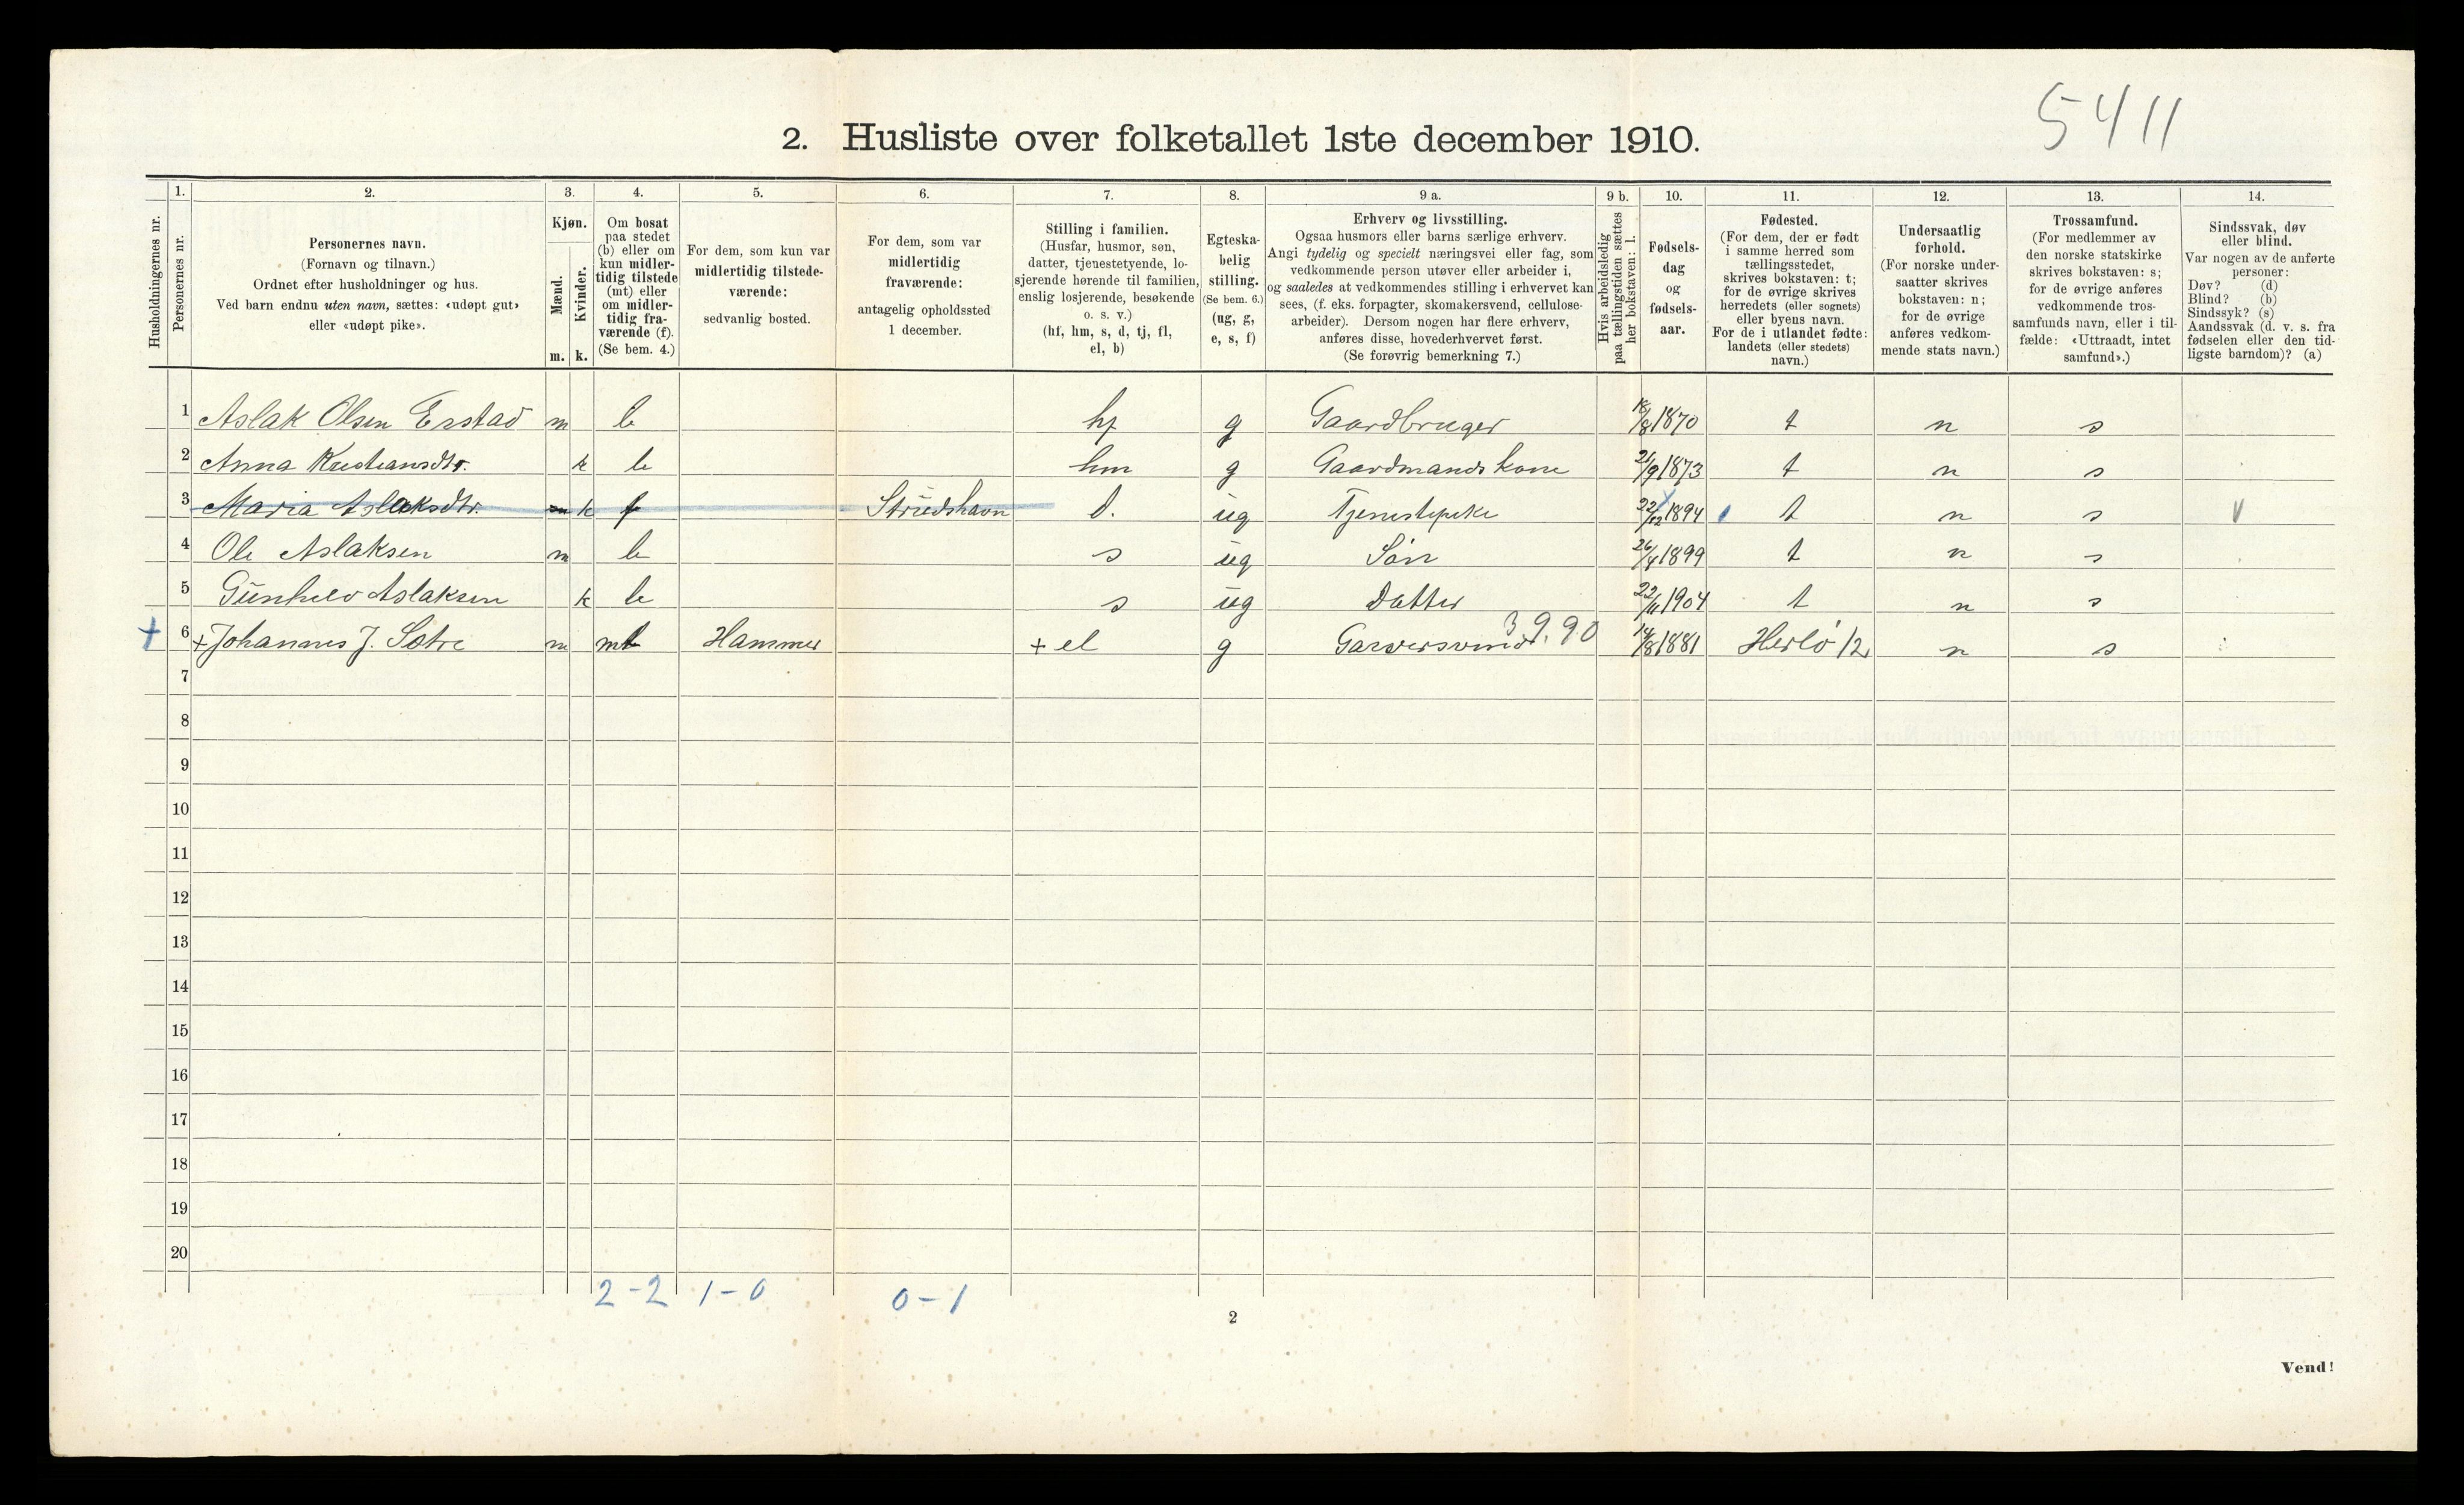 5411
2. Husliste over folketallet 1ste december 1910.
Husholdningernes nr.
1.
Personernes nr.
2.
Personernes navn.
(Fornavn og tilnavn.)
Ordnet efter husholdninger og hus.
Ved barn endnu uten navn, sættes: «udøpt gut»
eller «udøpt pike».
3.
Kjøn.
Mænd.
Kvinder.
m. k.
4.
Om bosat
paa stedet
(b) eller om
kun midler-
tidig tilstede
(mt) eller
om midler-
tidig fra-
værende (f).
(Se bem. 4.)
5.
For dem, som kun var
midlertidig tilstede-
værende:
sedvanlig bosted.
6.
For dem, som var
midlertidig
fraværende:
antagelig opholdssted
1 december.
7.
Stilling i familien.
(Husfar, husmor, søn,
datter, tjenestetyende, lo-
sjerende hørende til familien,
enslig losjerende, besøkende
o. s. v.)
(hf, hm, s, d, tj, fl,
el, b)
8.
Egteska-
belig
stilling.
(Se bem. 6.)
(ug, g,
e, s, f)
9 a.
Erhverv og livsstilling.
Ogsaa husmors eller barns særlige erhverv.
Angi tydelig og specielt næringsvei eller fag, som
vedkommende person utøver eller arbeider i,
og saaledes at vedkommendes stilling i erhvervet kan
sees, (f. eks. forpagter, skomakersvend, cellulose-
arbeider). Dersom nogen har flere erhverv,
anføres disse, hovederhvervet først.
(Se forøvrig bemerkning 7.)
9 b.
Hvis arbeidsledig
paa tællingstiden sættes
her bokstaven: l.
10.
Fødsels-
dag
og
fødsels-
aar.
11.
Fødested.
(For dem, der er født
i samme herred som
tællingsstedet,
skrives bokstaven: t;
for de øvrige skrives
herredets (eller sognets)
eller byens navn.
For de i utlandet fødte:
landets (eller stedets)
navn.)
12.
Undersaatlig
forhold.
(For norske under-
saatter skrives
bokstaven: n;
for de øvrige
anføres vedkom-
mende stats navn.)
13.
Trossamfund.
(For medlemmer av
den norske statskirke
skrives bokstaven: s;
for de øvrige anføres
vedkommende tros-
samfunds navn, eller i til-
fælde: «Uttraadt, intet
samfund».)
14.
Sindssvak, døv
eller blind.
Var nogen av de anførte
personer:
Døv? (d)
Blind? (b)
Sindssyk? (s)
Aandssvak (d. v. s. fra
fødselen eller den tid-
ligste barndom)? (a)
1 Aslak Olsen Erstad m b hf g Gaardbruger 18/8 1870 t n s
2 Anna Kristiansdtr. k b hm g Gaardmandskone 21/9 1873 t n s
3 Maria Aslaksdtr. m k f Strudshavn d. ug Tjenestepike 22/12 1894 t n s
4 Ole Aslaksen m b s ug Sön 26/4 1899 t n s
5 Gunhild Aslaksen k b s ug Datter 22/11 1904 t n s
+ 6 + Johannes J. Sætre m mt Hammer + el g Garversvend 39.90 14/8 1881 Herlö 12 n s
7
8
9
10
11
12
13
14
15
16
17
18
19
20
2-2 1-0 0-1
2
Vend!